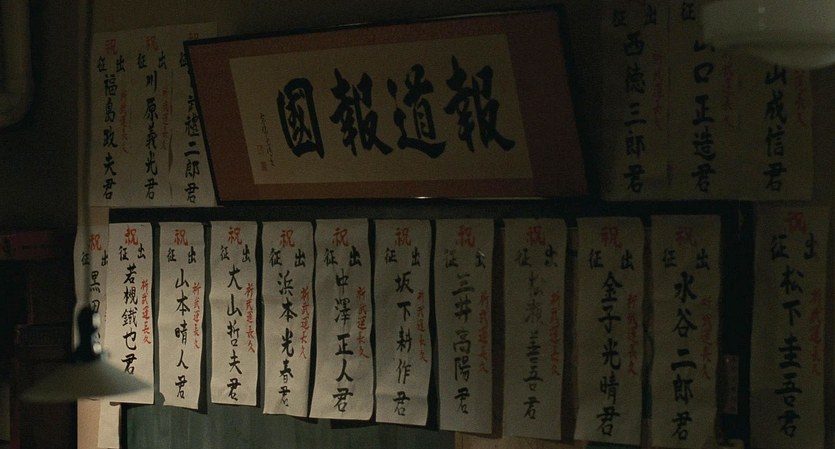 報道報國
出征
山口正造君
出征
西徳三郎君
祝
出征
川原義光君
祈武運長久
祝
出征
福島政夫君
祈武運長久
祝
出征
松下圭吾君
祝
出征
水谷二郎君
祈武運長久
祝
出征
金子光晴君
祈武運長久
祝
出征
善吾君
祈武運長久
祝
出征
三井高陽君
祈武運長久
祝
出征
坂下耕作君
祈武運長久
祝
出征
中澤正人君
祈武運長久
祝
出征
浜本光春君
祈武運長久
祝
出征
大山哲夫君
祈武運長久
祝
出征
山本晴人君
祈武運長久
祝
出征
若槻鐵也君
祈武運長久
祝